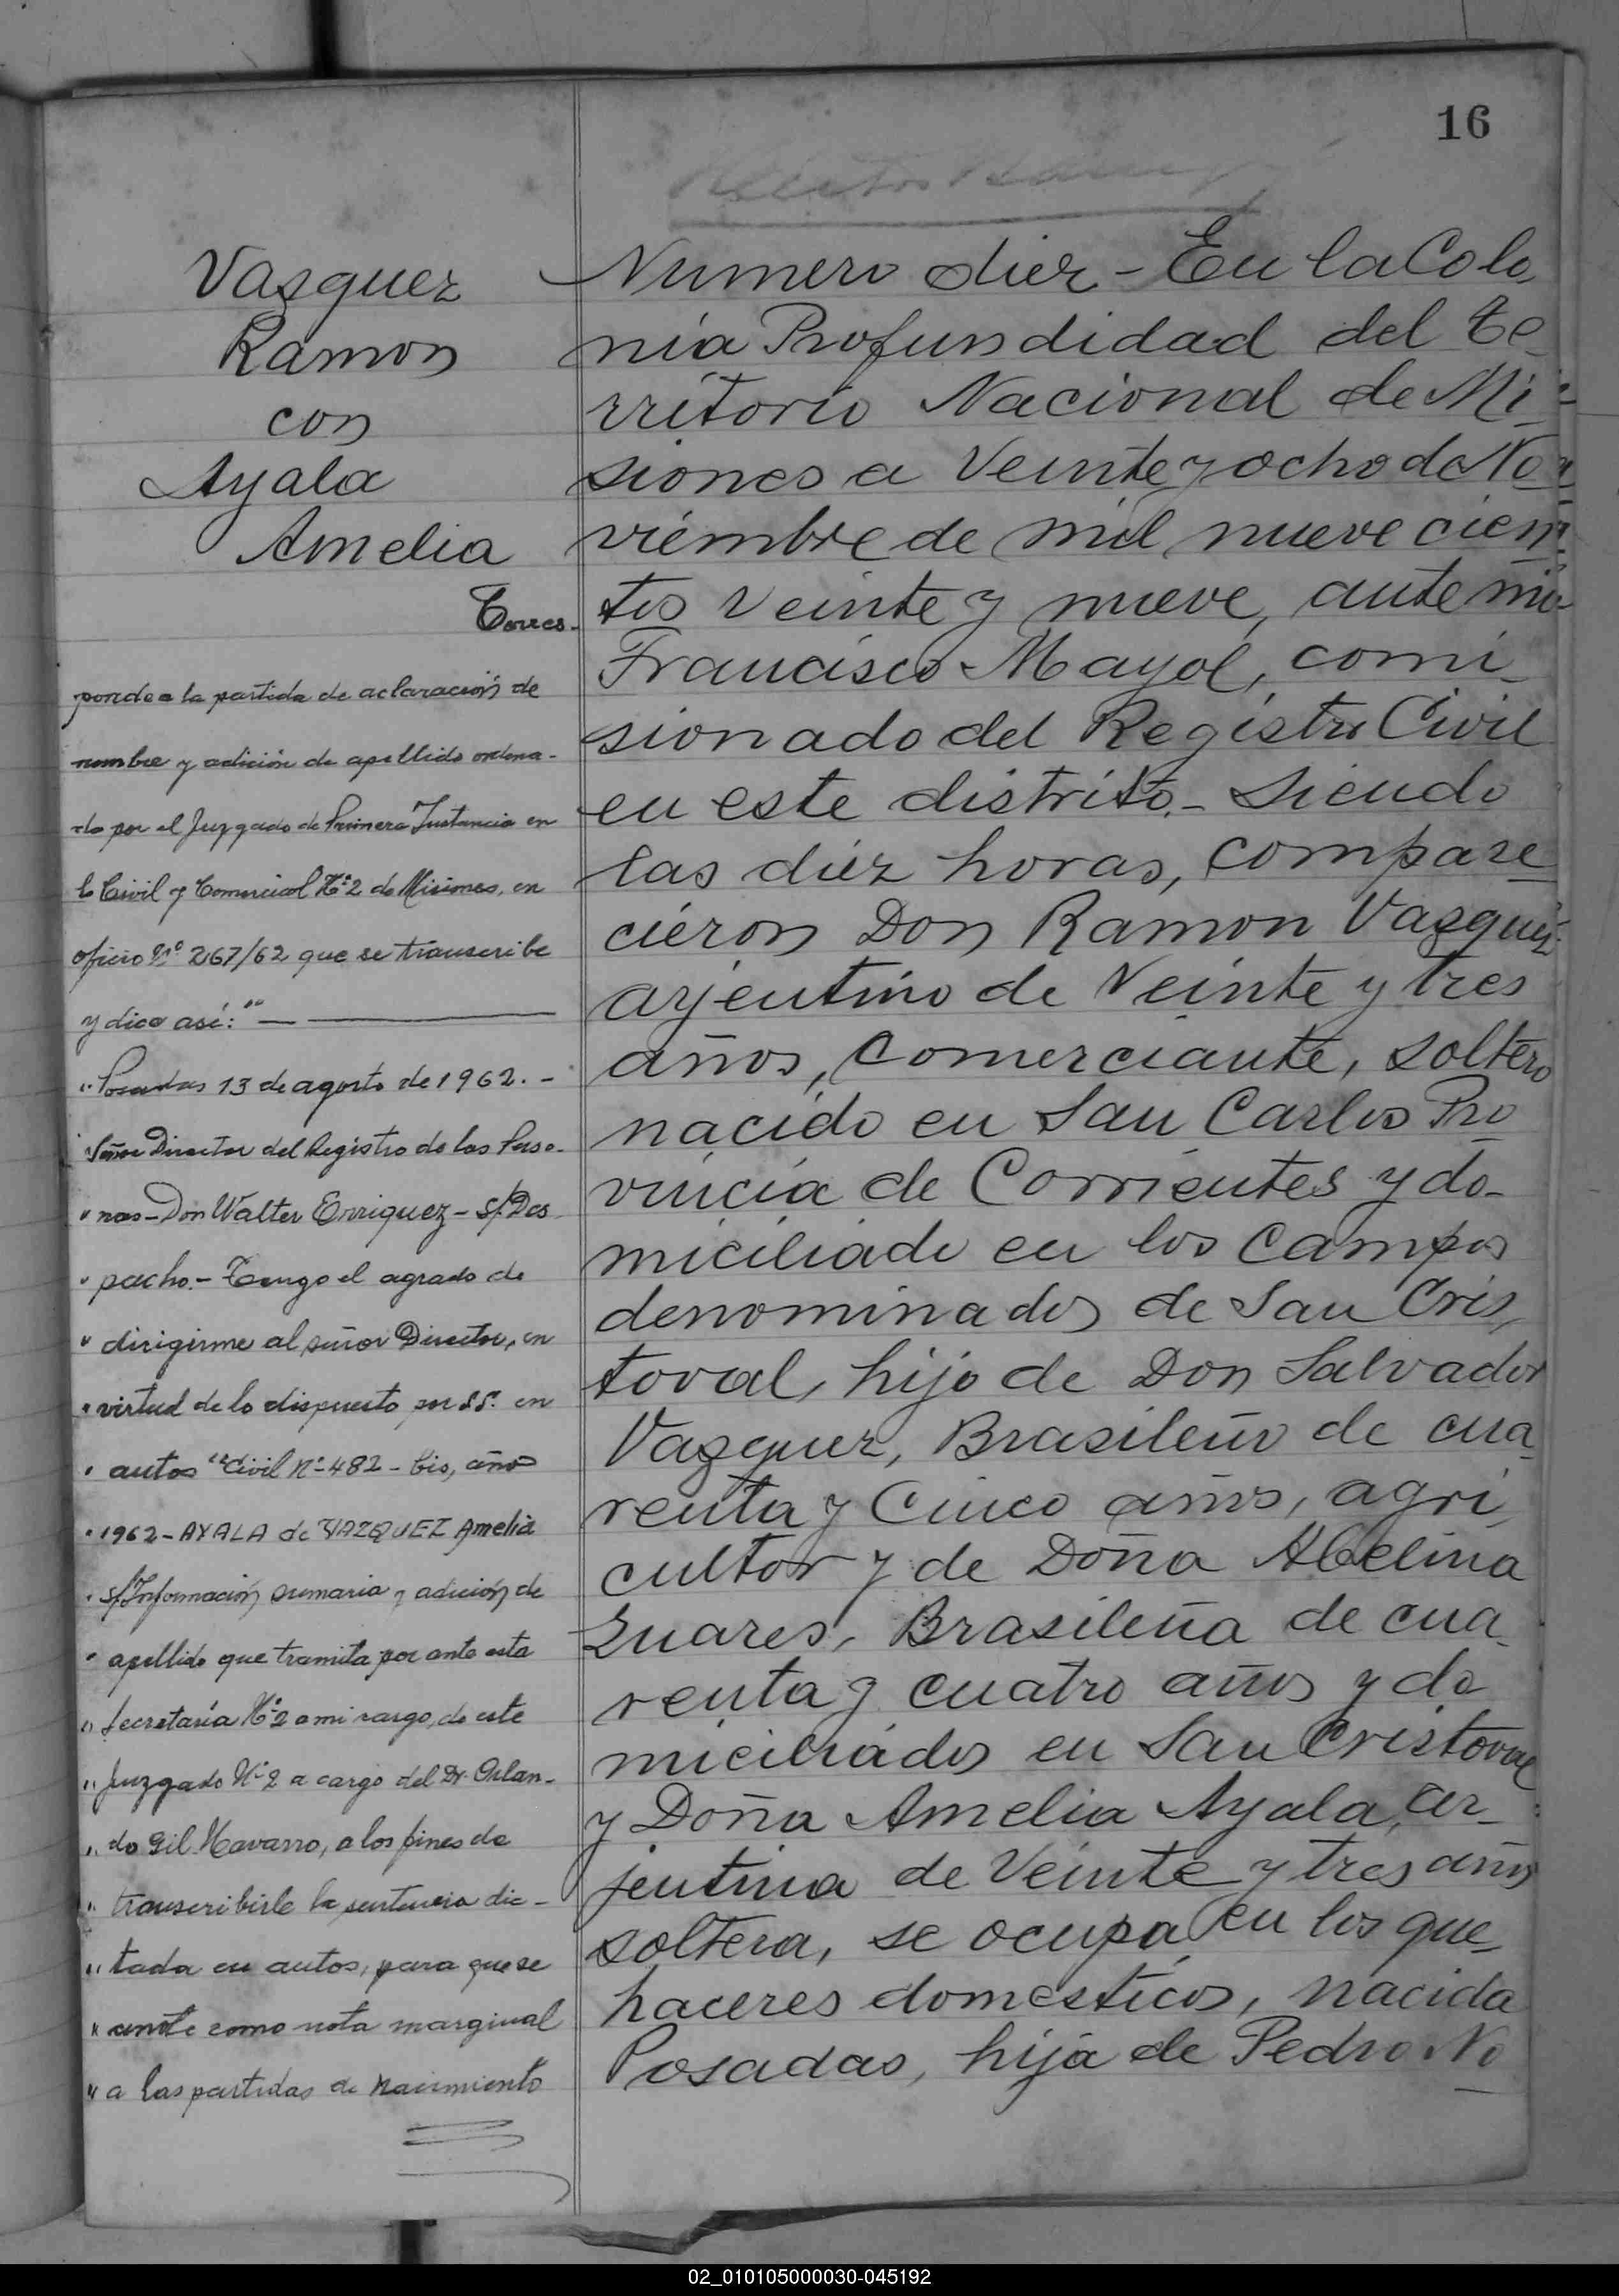 16
Vasquez
Ramon
con
Ayala
Amelia
Corres-
ponde a la partida de aclaración de
nombre y adición de apellido ordena-
do por el Juzgado de Primera Instancia en
lo Civil y Comercial Nº 2 de Misiones, en
oficio Nº 267/62 que se transcribe
y dice así: "—
"Posadas 13 de agosto de 1962.-
"Señor Director del Registro de las Perso-
"nas-Don Walter Enriquez- S/Des
"pacho.- Tengo el agrado de
"dirigirme al señor Director, en
"virtud de lo dispuesto por S.S. en
"autos "Civil Nº 482- bis, año
"1962- AYALA de VAZQUEZ Amelia
"s/Información sumaria y adición de
"apellido que tramita por ante esta
"Secretaría Nº 2 a mi cargo, de este
"Juzgado Nº 2 a cargo del Dr. Orlan-
"do Gil Navarro, a los fines de
"transcribirle la sentencia dic-
"tada en autos, para que se
"anote como nota marginal
"a las partidas de nacimiento
Numero diez - En la Colo
nia Profundidad del te
rritorio Nacional de Mi-
siones a Veinte y ocho de No
viembre de mil nueve cien
tos veinte y nueve, ante mi
Francisco Mayol, comi-
sionado del Registro Civil
en este distrito.- Siendo
las diez horas, compare
cieron Don Ramon Vasquez
arjentino de Veinte y tres
años, comerciante, soltero
nacido en San Carlos Pro
vincia de Corrientes y do-
miciliado en los Campos
denominados de San Cris,
toval, hijo de Don Salvador
Vazquez, Brasileño de cua
renta y cinco años, agri
cultor y de Doña Abelina
Suares, Brasileña de cua
renta y cuatro años y do
miciliados en San Cristoval
y Doña Amelia Ayala, ar-
jentina de Veinte y tres años
soltera, se ocupa en los que
haceres domesticos, nacida
Posadas, hija de Pedro No
02_010105000030-045192